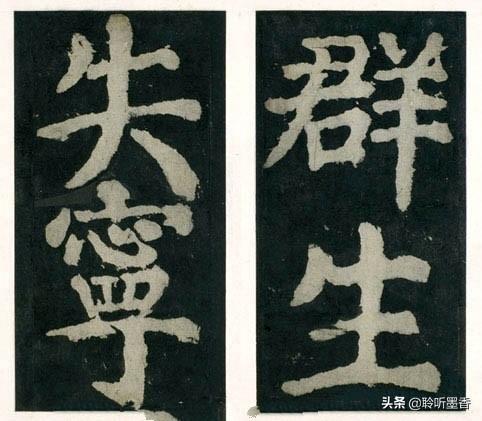 群生
失寧
头条 @聆听墨香